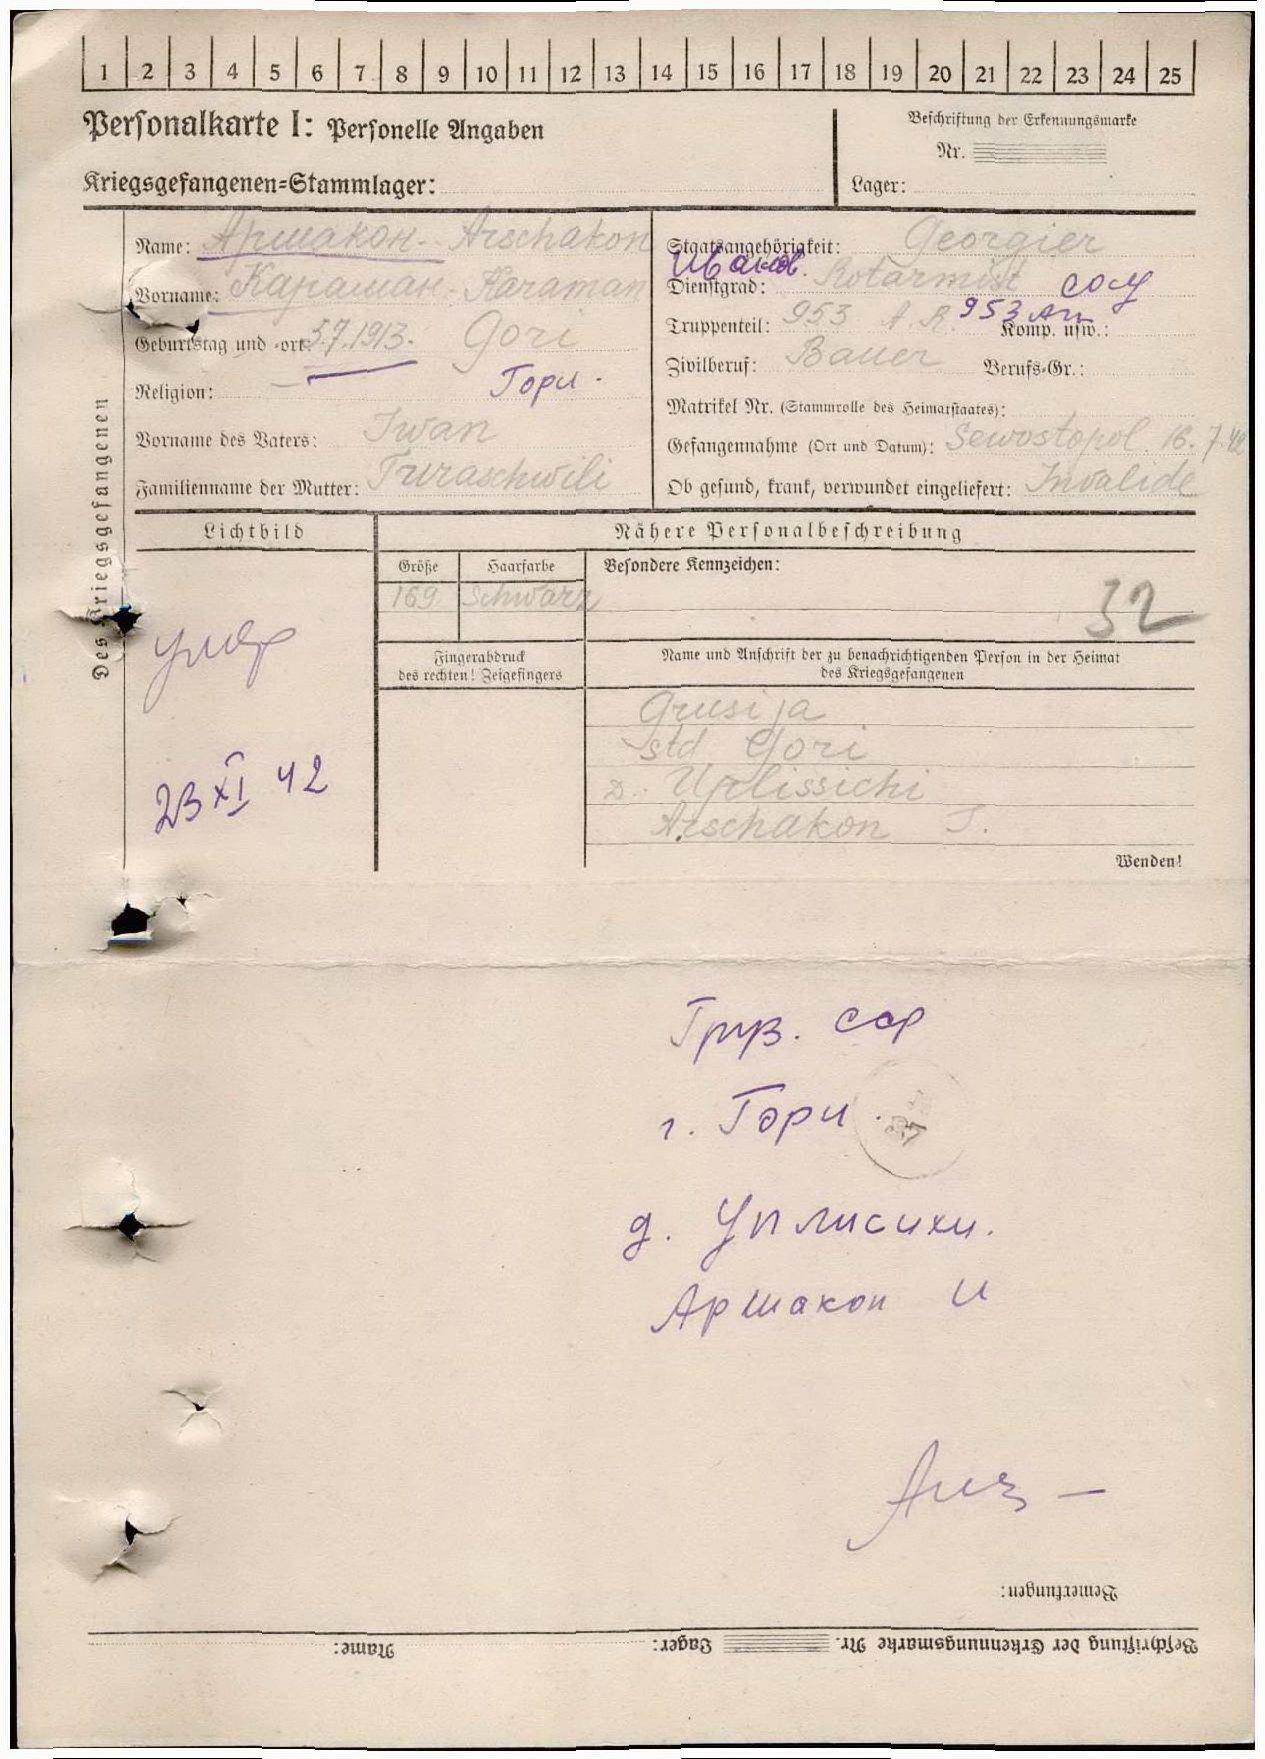 1 2 3 4 5 6 7 8 9 10 11 12 13 14 15 16 17 18 19 20 21 22 23 24 25
Personalkarte I: Personelle Angaben
Kriegsgefangenen=Stammlager:
Beschriftung der Erkennungsmarke
Nr.
Lager:
Des Kriegsgefangenen
Name: Аршакон - Arschakon
Vorname: Караман - Karaman
Geburtstag und -ort: 5.7.1913. Gori
Religion: — Гори.
Vorname des Vaters: Iwan
Familienname der Mutter: Turaschwili
Staatsangehörigkeit: Georgier
Иванов.
Dienstgrad: Rotarmist
Truppenteil: 953 A.R. 953 Ап Komp. usw.:
Zivilberuf: Bauer Berufs=Gr.:
Matrikel Nr. (Stammrolle des Heimatstaates):
Gefangennahme (Ort und Datum): Sewostopol. 16.7.42
Ob gesund, krank, verwundet eingeliefert: Invalide
Lichtbild
Nähere Personalbeschreibung
Größe Haarfarbe Besondere Kennzeichen:
169 Schwarz
32
Fingerabdruck
des rechten! Zeigefingers
Name und Anschrift der zu benachrichtigenden Person in der Heimat
des Kriegsgefangenen
умер
23 XI 42
Grusija
std Gori
D. Uplissichi
Arschakon I.
Wenden!
Груз. сср
г. Гори.
д. Уплисихи.
Аршакон И
Bemerkungen:
Beschriftung der Erkennungsmarke Nr. Lager: Name: